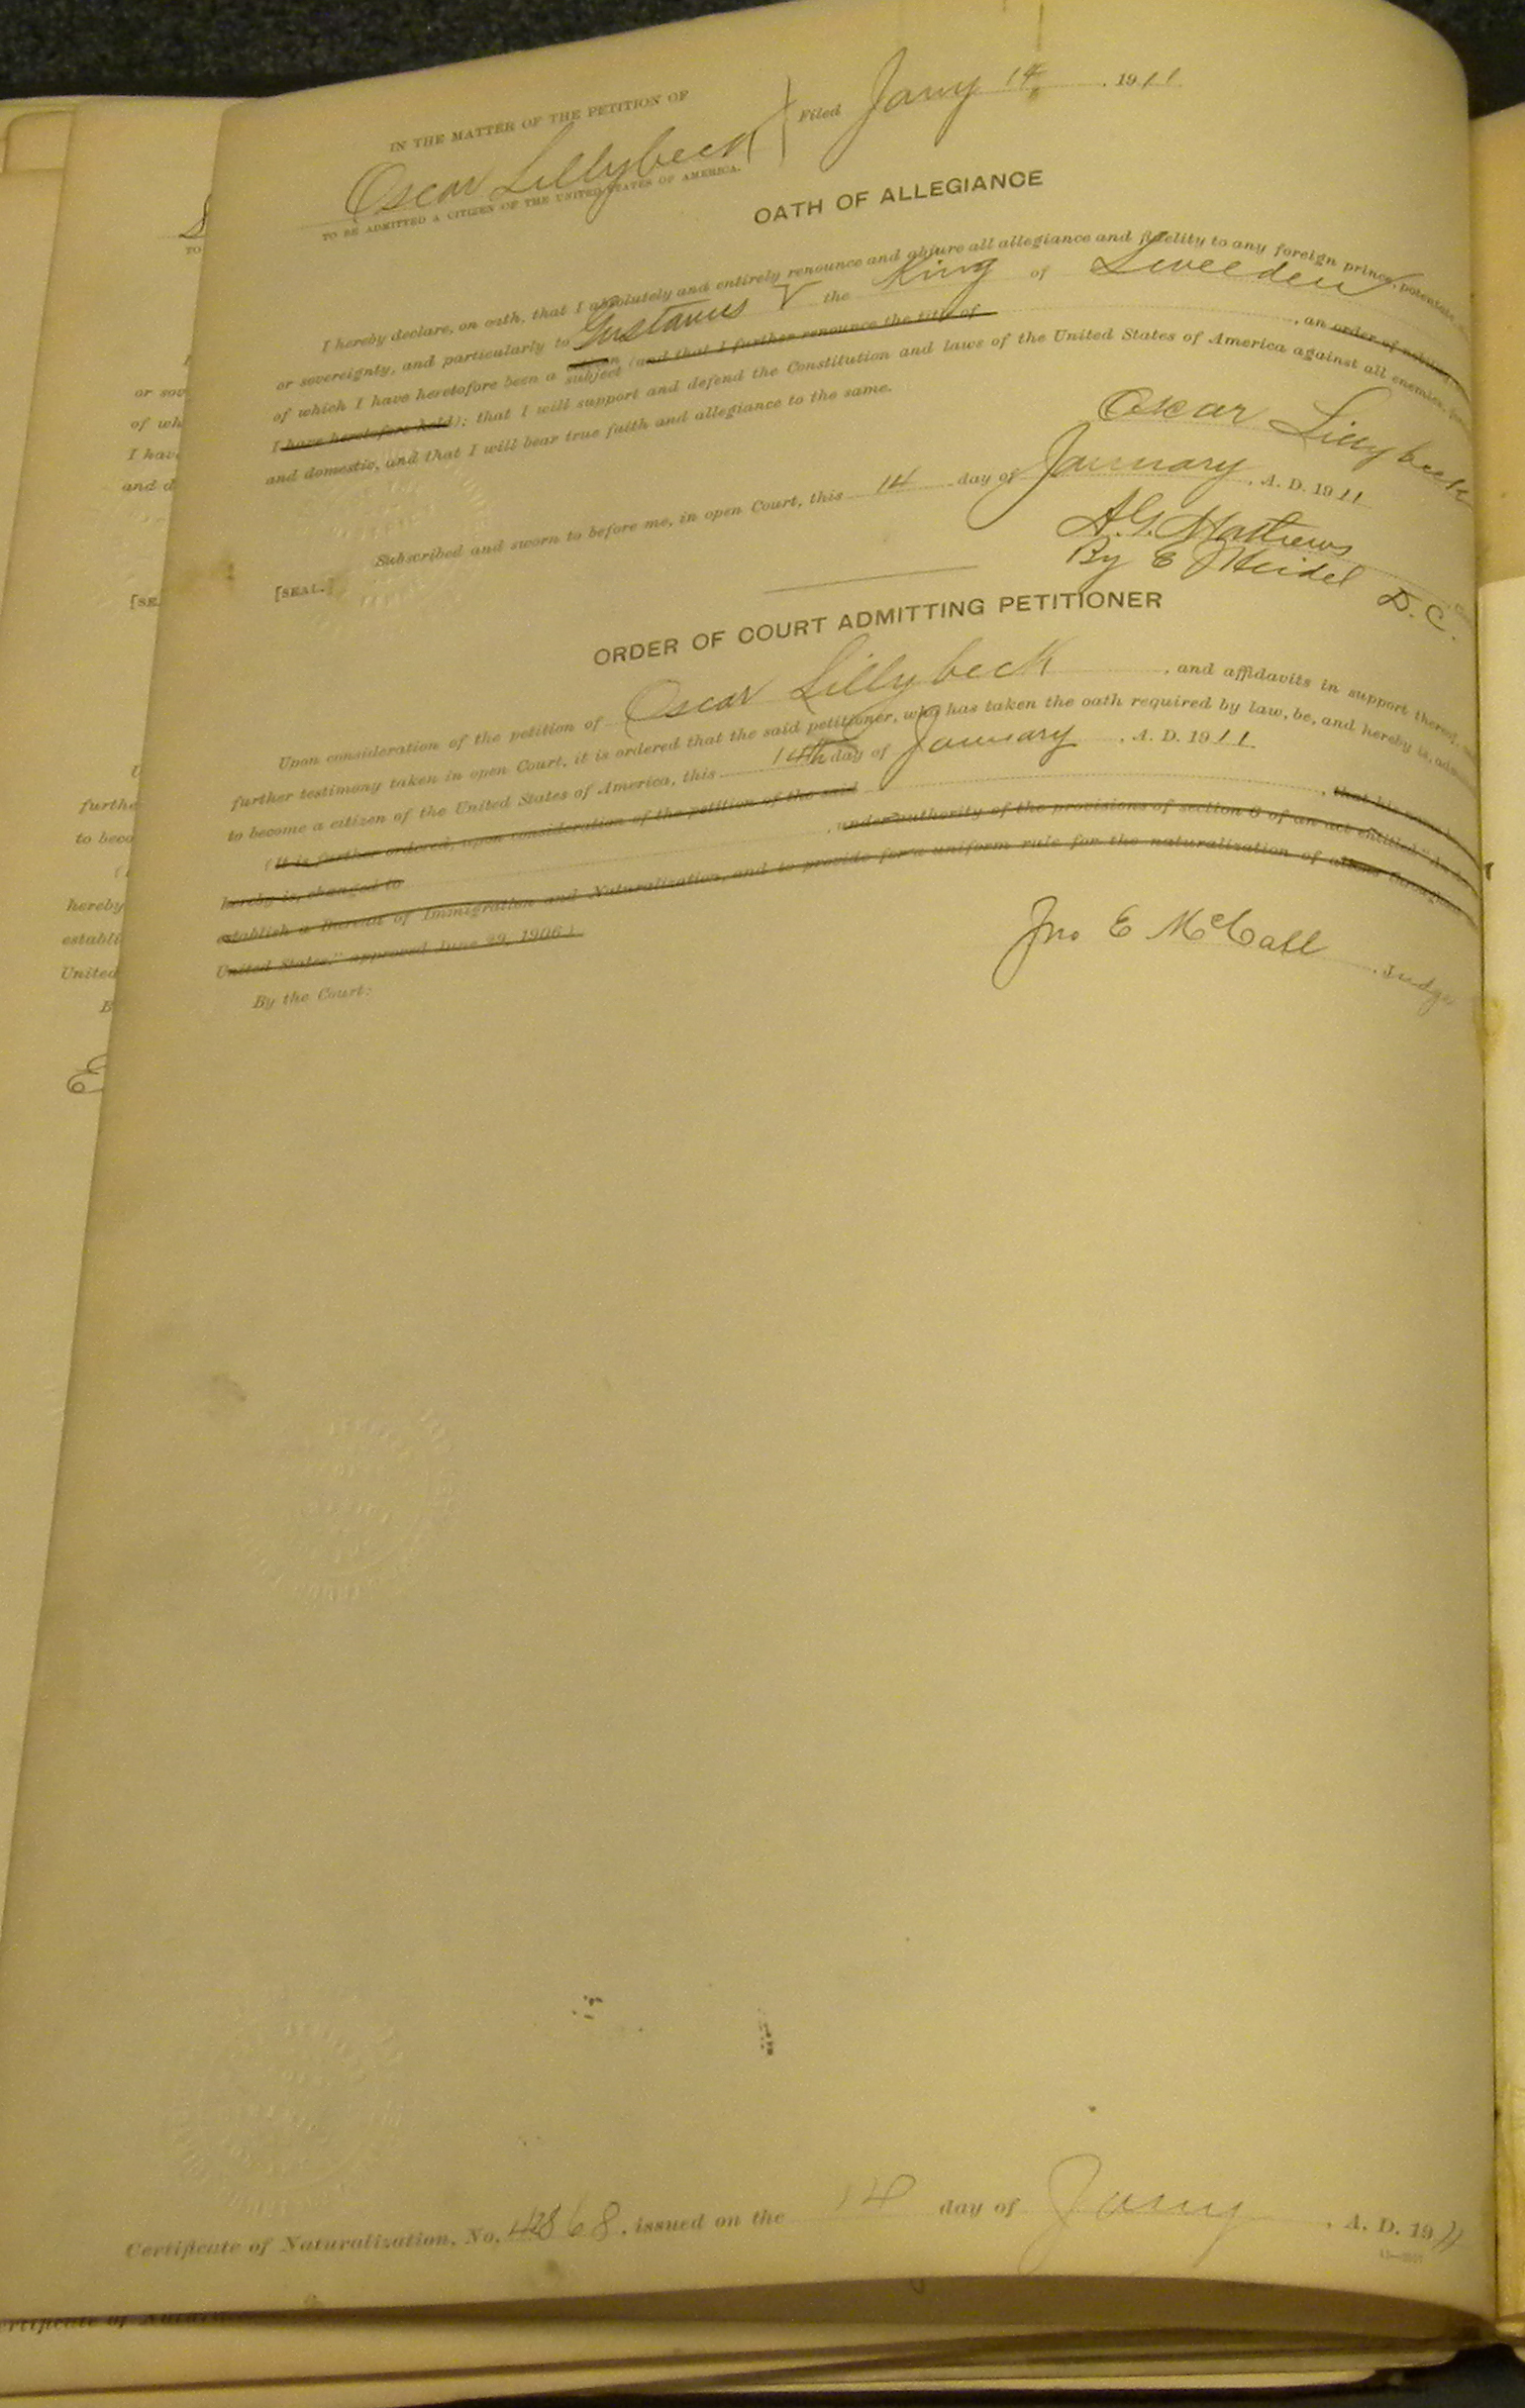 IN THE MATTER OF THE PETITION OF
Oscar Lillybeck
TO BE ADMITTED A CITIZEN OF THE UNITED STATES OF AMERICA.
Filed Jany 14, 1911
OATH OF ALLEGIANCE
I hereby declare, on oath, that I absolutely and entirely renounce and abjure all allegiance and fidelity to any foreign prince, potentate,
or sovereignty, and particularly to Gustavus V the King of Sweeden
of which I have heretofore been a citizen subject (and that I further renounce the title of , an order of nobility,
I have heretofore held); that I will support and defend the Constitution and laws of the United States of America against all enemies,
and domestic, and that I will bear true faith and allegiance to the same.
Oscar Lillybeck
Subscribed and sworn to before me, in open Court, this 14 day of January, A. D. 1911
A.G. Mathews
[SEAL.]
By E J Heidel D.C.
ORDER OF COURT ADMITTING PETITIONER
Upon consideration of the petition of Oscar Lillybeck, and affidavits in support thereof,
further testimony taken in open Court, it is ordered that the said petitioner, who has taken the oath required by law, be, and hereby is,
to become a citizen of the United States of America, this 14th day of January, A. D. 1911
(It is further ordered, upon consideration of the petition of the said , that his
hereby is, changed to , under authority of the provisions of section 6 of an act entitled "
establish a Bureau of Immigration and Naturalization, and to provide for a uniform rule for the naturalization of aliens throughout
United States," approved June 29, 1906.)
By the Court:
Jno E McCall, Judge
Certificate of Naturalization, No. 42868, issued on the 14 day of Jany, A. D. 1911